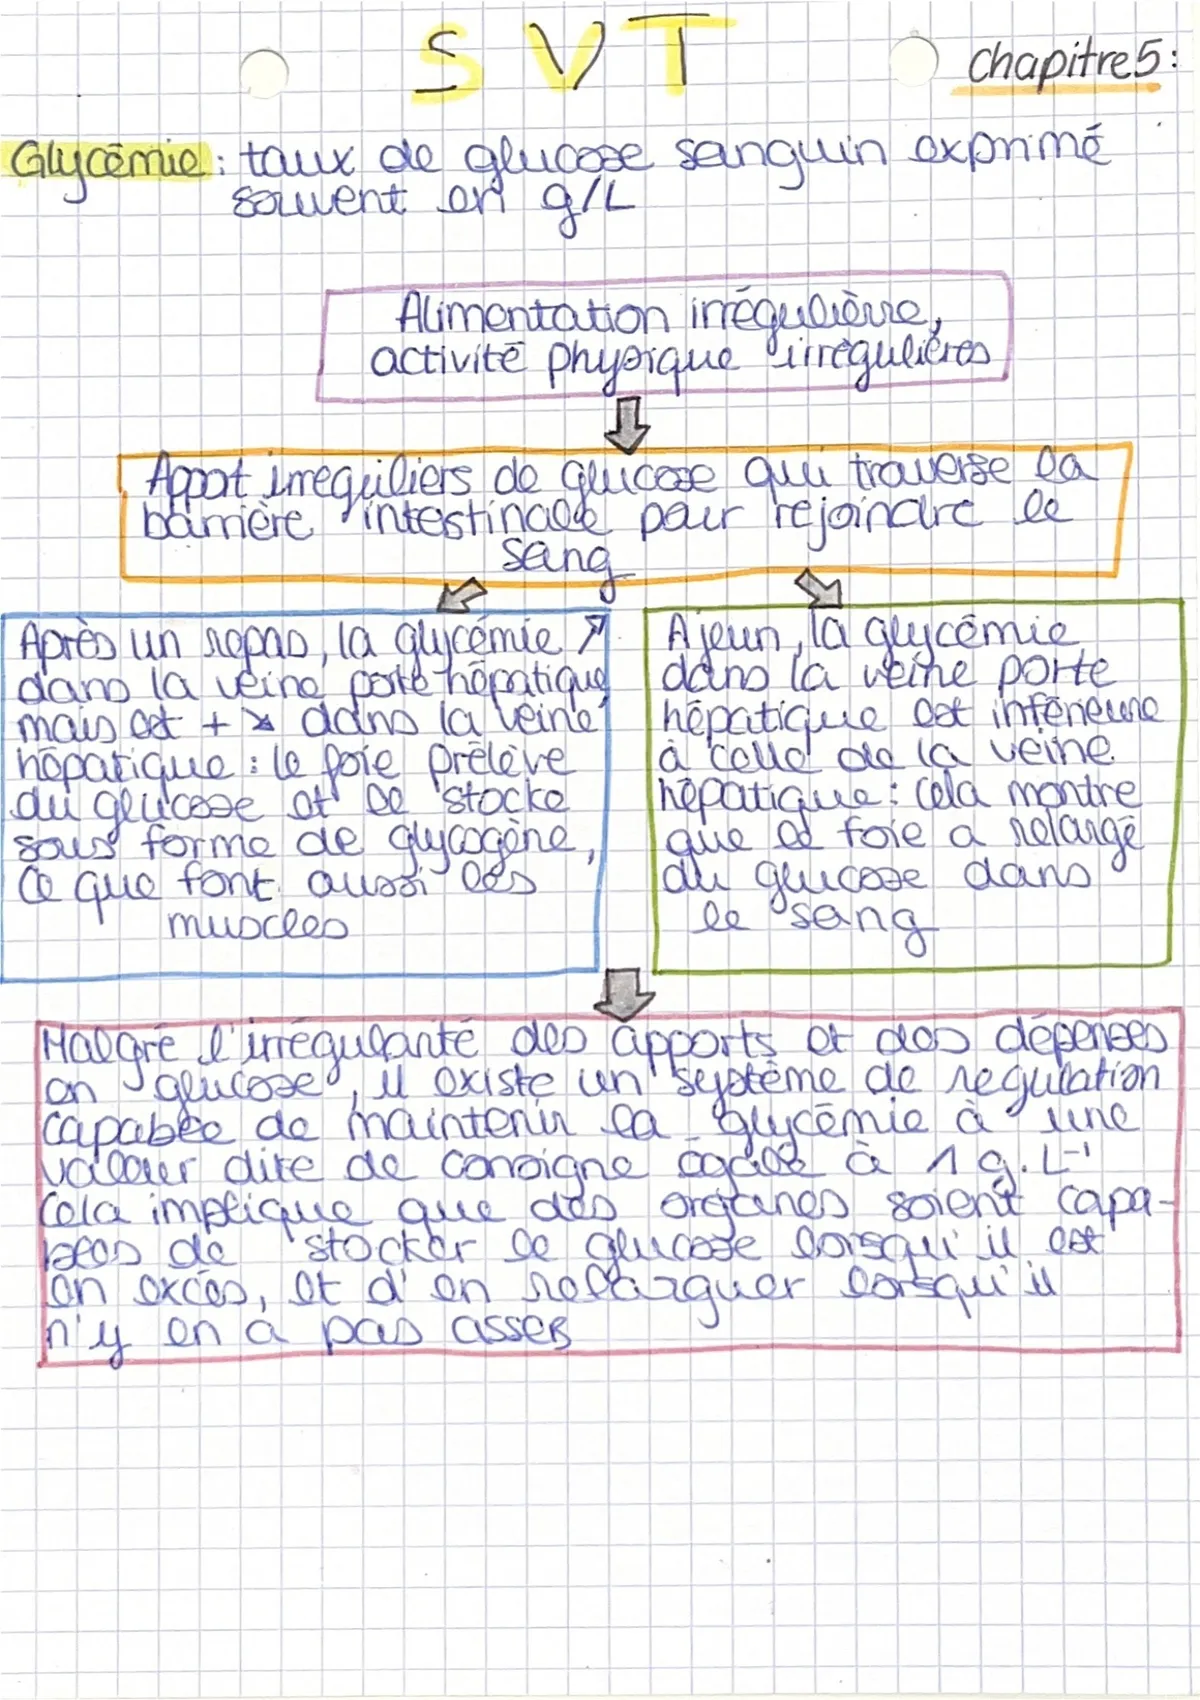 SVT
chapitre5:
Glycémie: taux de glucose sanguin exprimé
souvent en g/L
Alimentation irrégulière,
activité physique irrégulières
Appot irreguliers de glucose qui traverse la
barrière intestinale pour rejoindre le
sang
Après un repas, la glycémie ↗
dans la veine porte hépatique
mais est + ↘ dans la veine
hépatique : le foie prélève
du glucose et le stocke
sous forme de glycogène,
ce que font aussi les
muscles
A jeun, la glycémie
dans la veine porte
hépatique est inférieure
à celle de la veine
hépatique : cela montre
que le foie a relargé
du glucose dans
le sang
Malgré l'irrégularité des apports et des dépenses
en glucose, il existe un système de regulation
capable de maintenir la glycémie à une
valeur dite de consigne égale à 1 g.L⁻¹
Cela implique que des organes soient capa-
bles de stocker le glucose lorsqu'il est
en excès, et d'en relarguer lorsqu'il
n'y en a pas assez